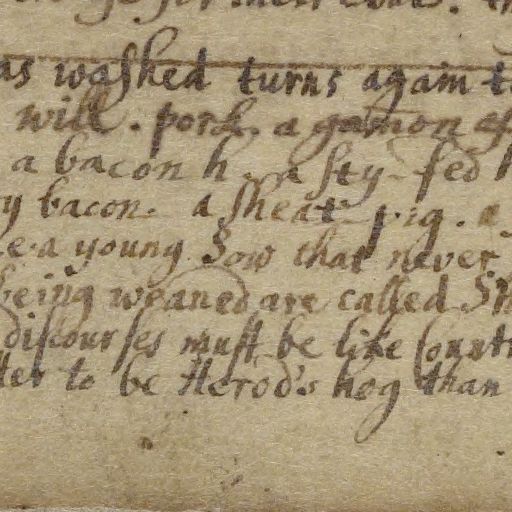 as washed turns again t
will. pork. a gamon of
a bacon h. a sty-fed
y bacon. a sheat pig. a
a young Sow that never
being weaned are called Sh
discourses must be like Countr
ter to be Herod's hog than